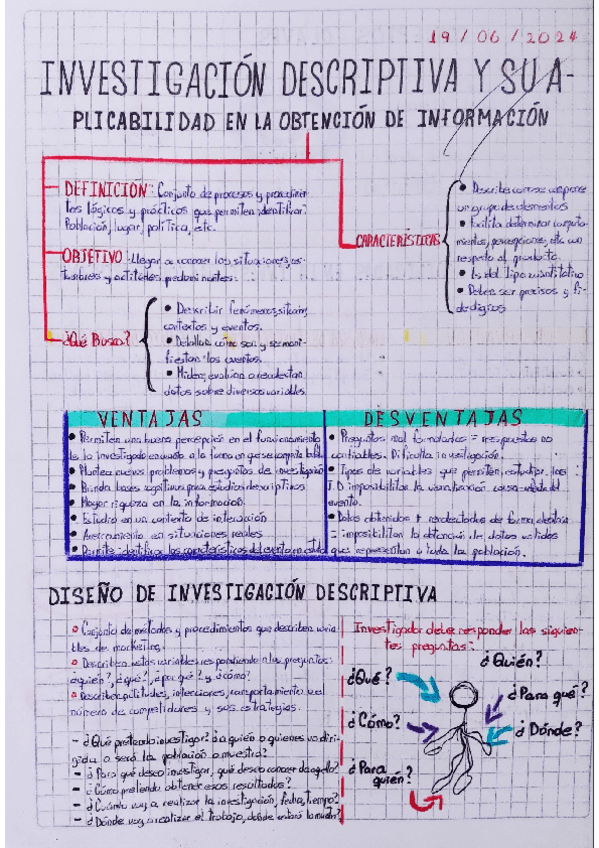 19/06/2024
INVESTIGACIÓN DESCRIPTIVA Y SU A-
PLICABILIDAD EN LA OBTENCIÓN DE INFORMACIÓN
DEFINICIÓN: Conjunto de procesos y procedimien-
tos lógicos y prácticos que permiten identificar:
Población, lugar, política, etc.
OBJETIVO: Llegar a conocer las situaciones, cos-
tumbres y actitudes predominantes.
¿Qué Busca?
• Describir fenómenos, situacion,
contextos y eventos.
• Detallar cómo son y se mani-
fiestan los eventos.
• Miden, evalúan o recolectan
datos sobre diversas variables.
CARACTERÍSTICAS
• Describe cómo se compone
un grupo de elementos
• Facilita determinar comporta-
mientos, percepciones, etc. con
respecto al producto.
• Es del tipo cuantitativo
• Deben ser precisos y fi-
dedignos
VENTAJAS
• Permiten una buena percepción en el funcionamiento
de lo investigado en cuanto a la forma en que se comporta
• Plantea nuevos problemas y preguntas de investigación
• Brinda bases cognitivas para estudios descriptivos
• Mayor riqueza en la información
• Estudio en un contexto de interacción
• Acercamiento en situaciones reales
• Permite identificar las características del evento en estudio
DESVENTAJAS
• Preguntas mal formuladas = respuestas no
confiables. Dificulta investigación.
• Tipos de variables que permiten estudiar las
I.D imposibilitan la visualización causa-efecto del
evento.
• Datos obtenidos + recolectados de forma aleatoria
= imposibilitan la obtención de datos validos
que representan a toda la población.
DISEÑO DE INVESTIGACIÓN DESCRIPTIVA
• Conjunto de métodos y procedimientos que describen varia
bles de marketing.
• Describen estas variables respondiendo a las preguntas:
¿quién?, ¿qué?, ¿por qué? y ¿cómo?
• Describen actitudes, intenciones, comportamiento, en el
número de competidores y sus estrategias.
- ¿Qué pretendo investigar? ¿a quién o quienes va diri-
gida o será la población o muestra?
- ¿Para qué deseo investigar, qué deseo conocer de aquello?
- ¿Cómo pretendo obtener esos resultados?
- ¿Cuándo voy a realizar la investigación, fecha, tiempo?
- ¿Dónde voy a realizar el trabajo, dónde estará la muestra?
Investigador debe responder las siguien-
tes preguntas:
¿Quién?
¿Qué?
¿Para qué?
¿Cómo?
¿Dónde?
¿Para
quién?